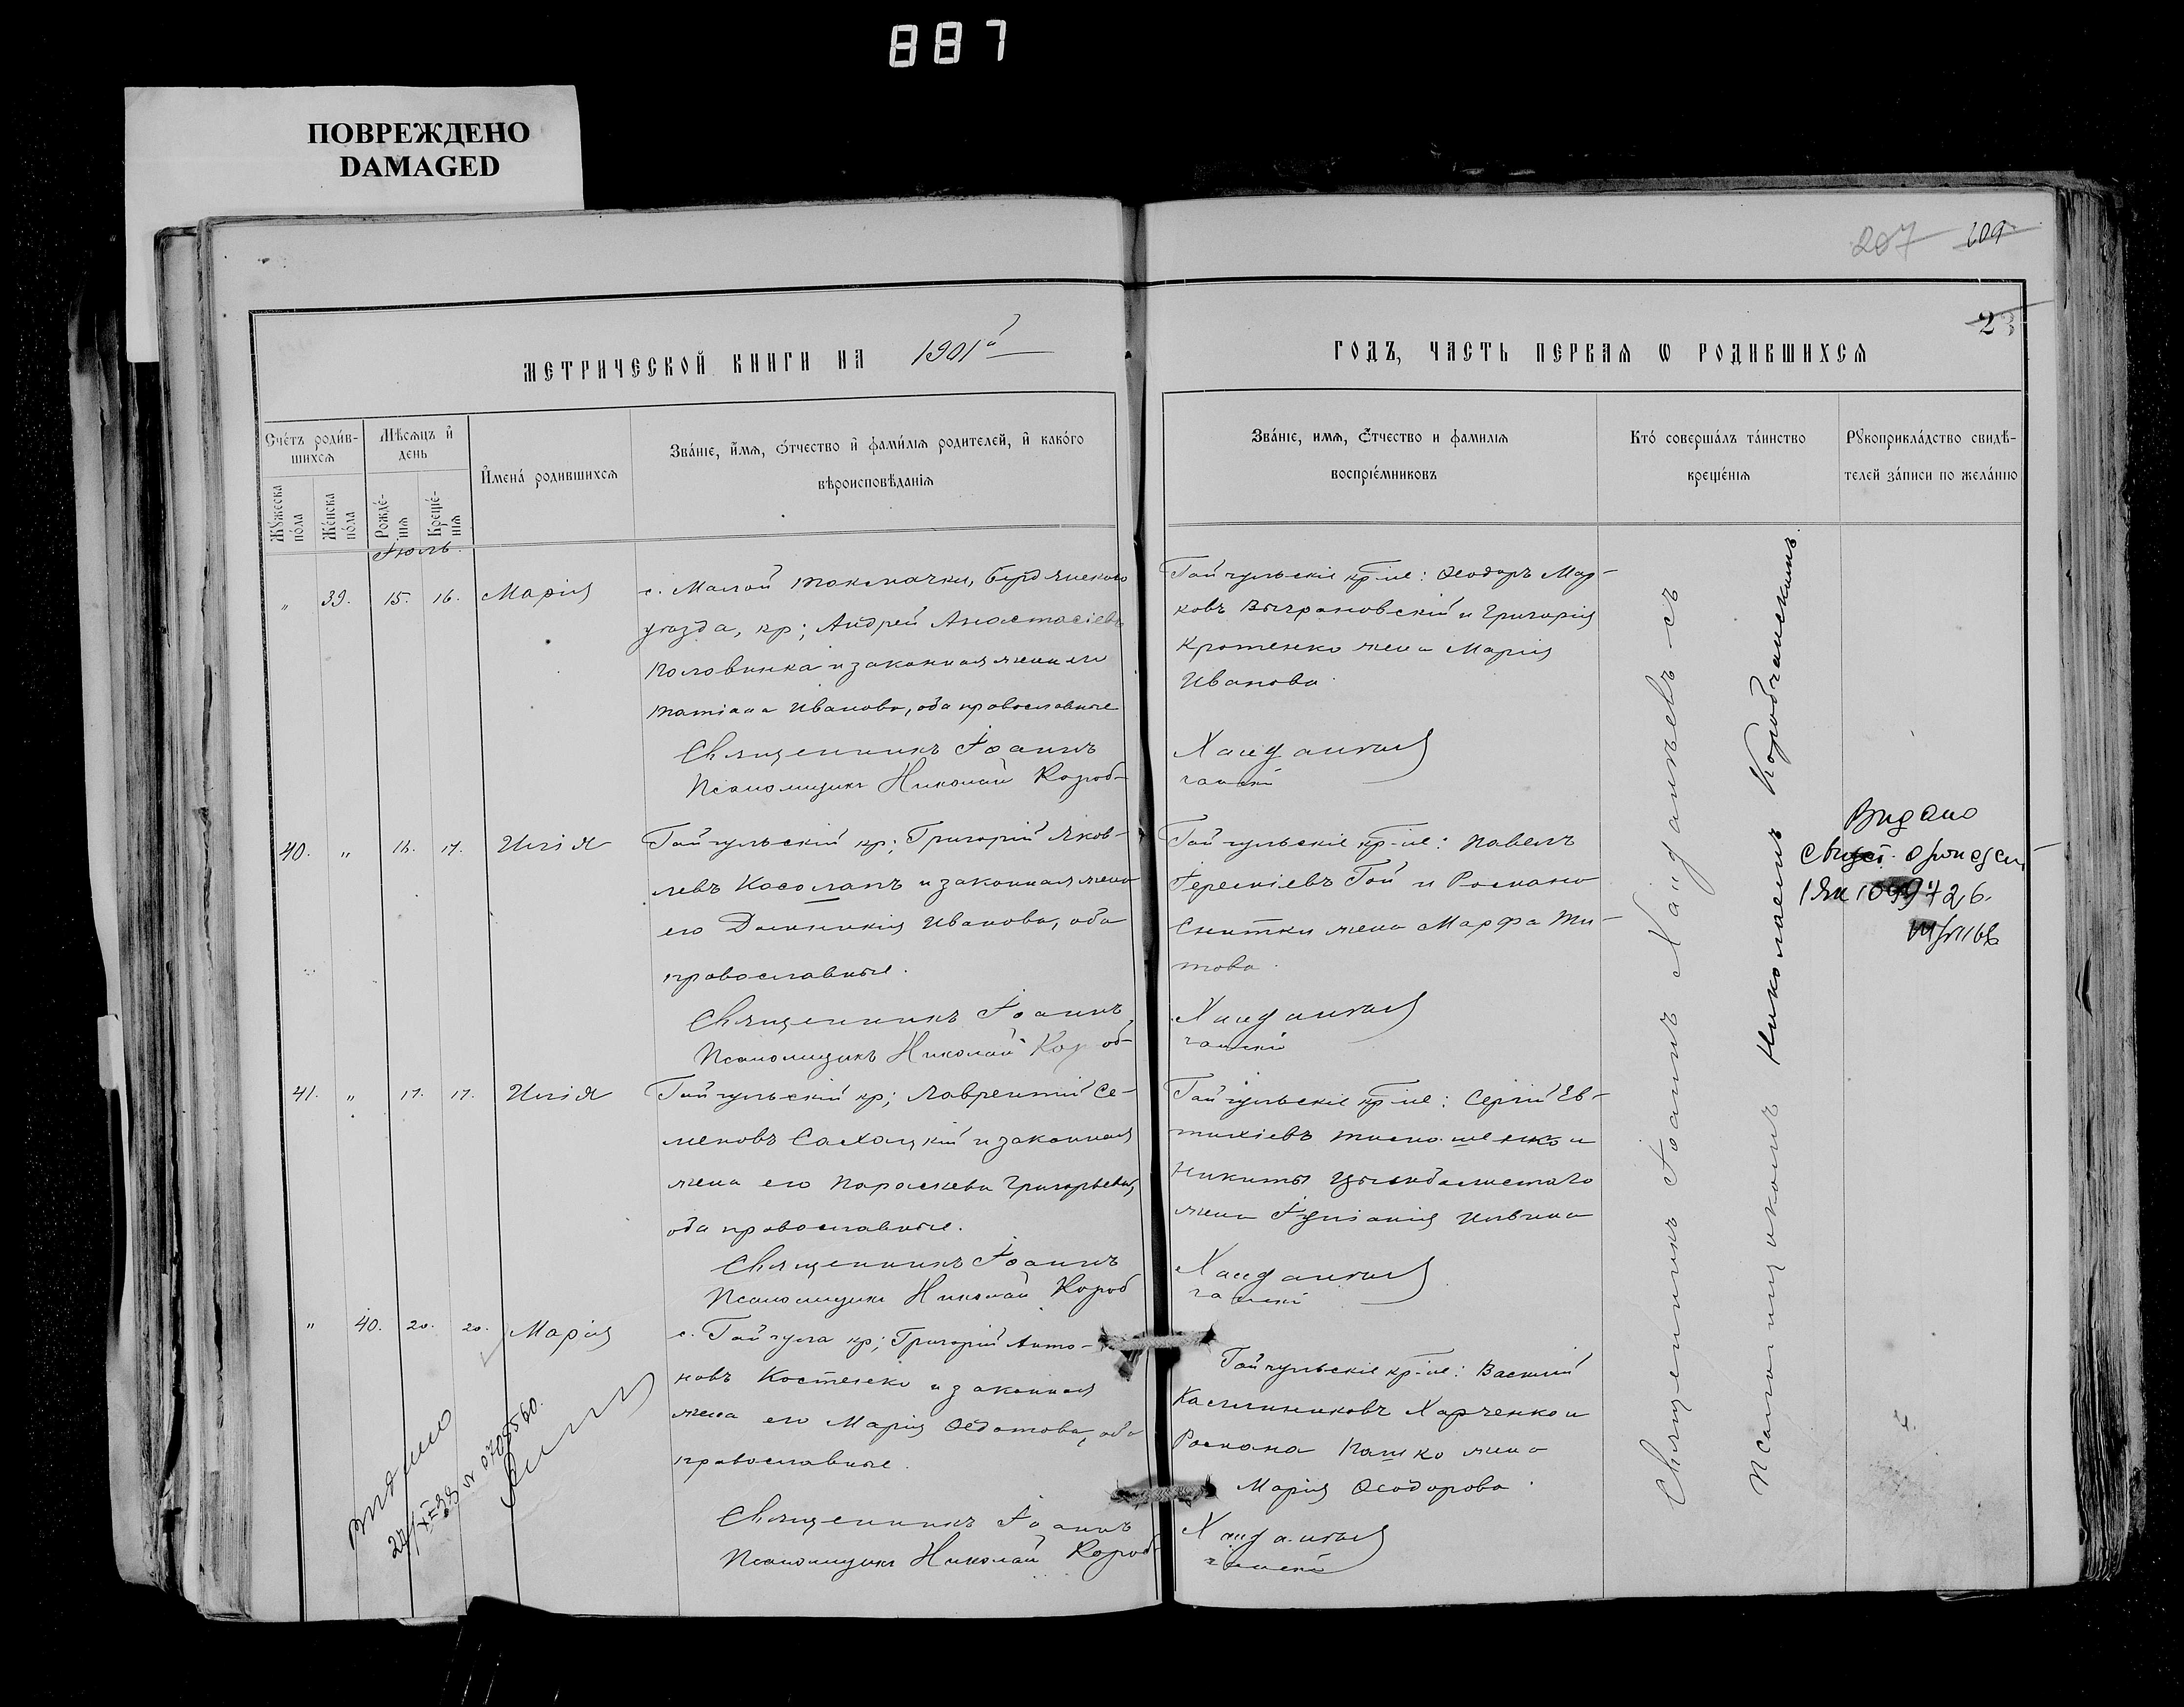 887
ПОВРЕЖДЕНО
DAMAGED
207 609
23
МЕТРИЧЕСКОЙ КНИГИ НА 1901й
ГОДЪ, ЧАСТЬ ПЕРВАЯ Ѡ РОДИВШИХСЯ
Счетъ родив-
шихся
Мꙋжеска
пола
Женска
пола
Мѣсяцъ и
день
Рожде-
нія
Креще-
нія
Имена родившихся
Званіе, имя, отчество и фамилія родителей, и какого
вѣроисповѣданія
Званіе, имя, отчество и фамилія
воспріемниковъ
Кто совершалъ таинство
крещенія
Рꙋкоприкладство свидѣ-
телей записи по желанію
Іюль.
" 39. 15. 16. Марія
с. Малой Токмачки, Бердянскаго
уѣзда, кр; Андрей Анастасіевъ
Половинка и законная жена его
Татіана Иванова, оба православные
Священникъ Іоаннъ
Псаломщикъ Николай Короб-
Гайчульскіе кр-не: Ѳеодоръ Мар-
ковъ и Григорія
Кротенко жена Марія
Иванова.
чанскій
40. " 16. 17. Илія
Гайчульскій кр; Григорій Яков-
левъ Косолапъ и законная жена
его Домникія Иванова, оба
православные.
Священникъ Іоаннъ
Псаломщикъ Николай Короб-
Гайчульскіе кр-не: Павелъ
Гай и Романа
Снитки жена Марфа Ти-
това.
чанскій
Видано
41. " 17. 17. Илія
Гайчульскій кр; Лаврентій Се-
меновъ Сахацкій и законная
жена его Параскева Григорьева,
оба православные.
Священникъ Іоаннъ
Псаломщикъ Николай Короб
Гайчульскіе кр-не: Сергій Ев-
тихіевъ Тимошенко и
Никиты
жена Іуліанія
чанскій
" 40. 20. 20. Марія
с. Гайчула кр; Григорій Анто-
новъ Костенко и законная
жена его Марія Ѳедотова, оба
православные.
Священникъ Іоаннъ
Псаломщикъ Николай Короб-
Гайчульскіе кр-не: Василій
Калинниковъ Харченко и
Романа Пашко жена
Марія Ѳеодорова.
чанскій
Видано
Священникъ Іоаннъ съ
Псаломщикомъ Николаемъ Коробчанскимъ.